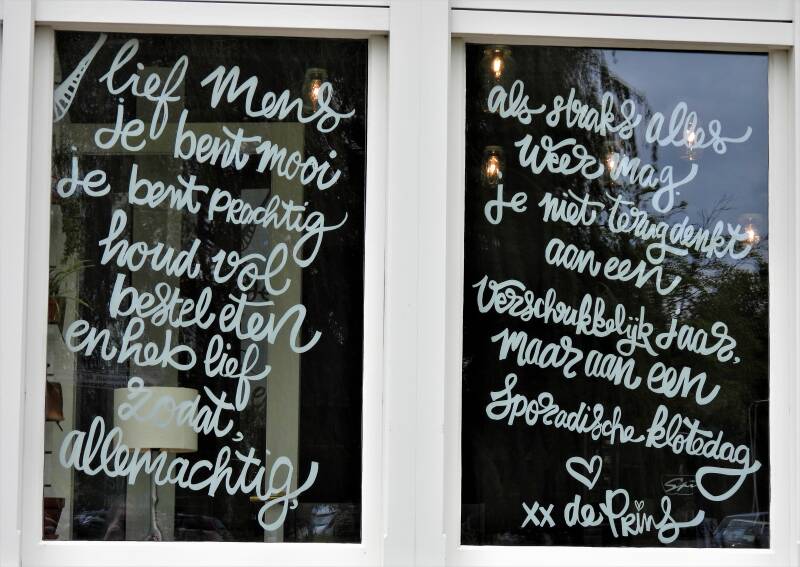 lief mens
je bent mooi
je bent prachtig
houd vol
bestel eten
en heb lief
zodat,
allemachtig,
als straks alles
weer mag.
je niet terugdenkt
aan een
verschrukkelijk jaar,
maar aan een
sporadische klotedag
xx de Prins